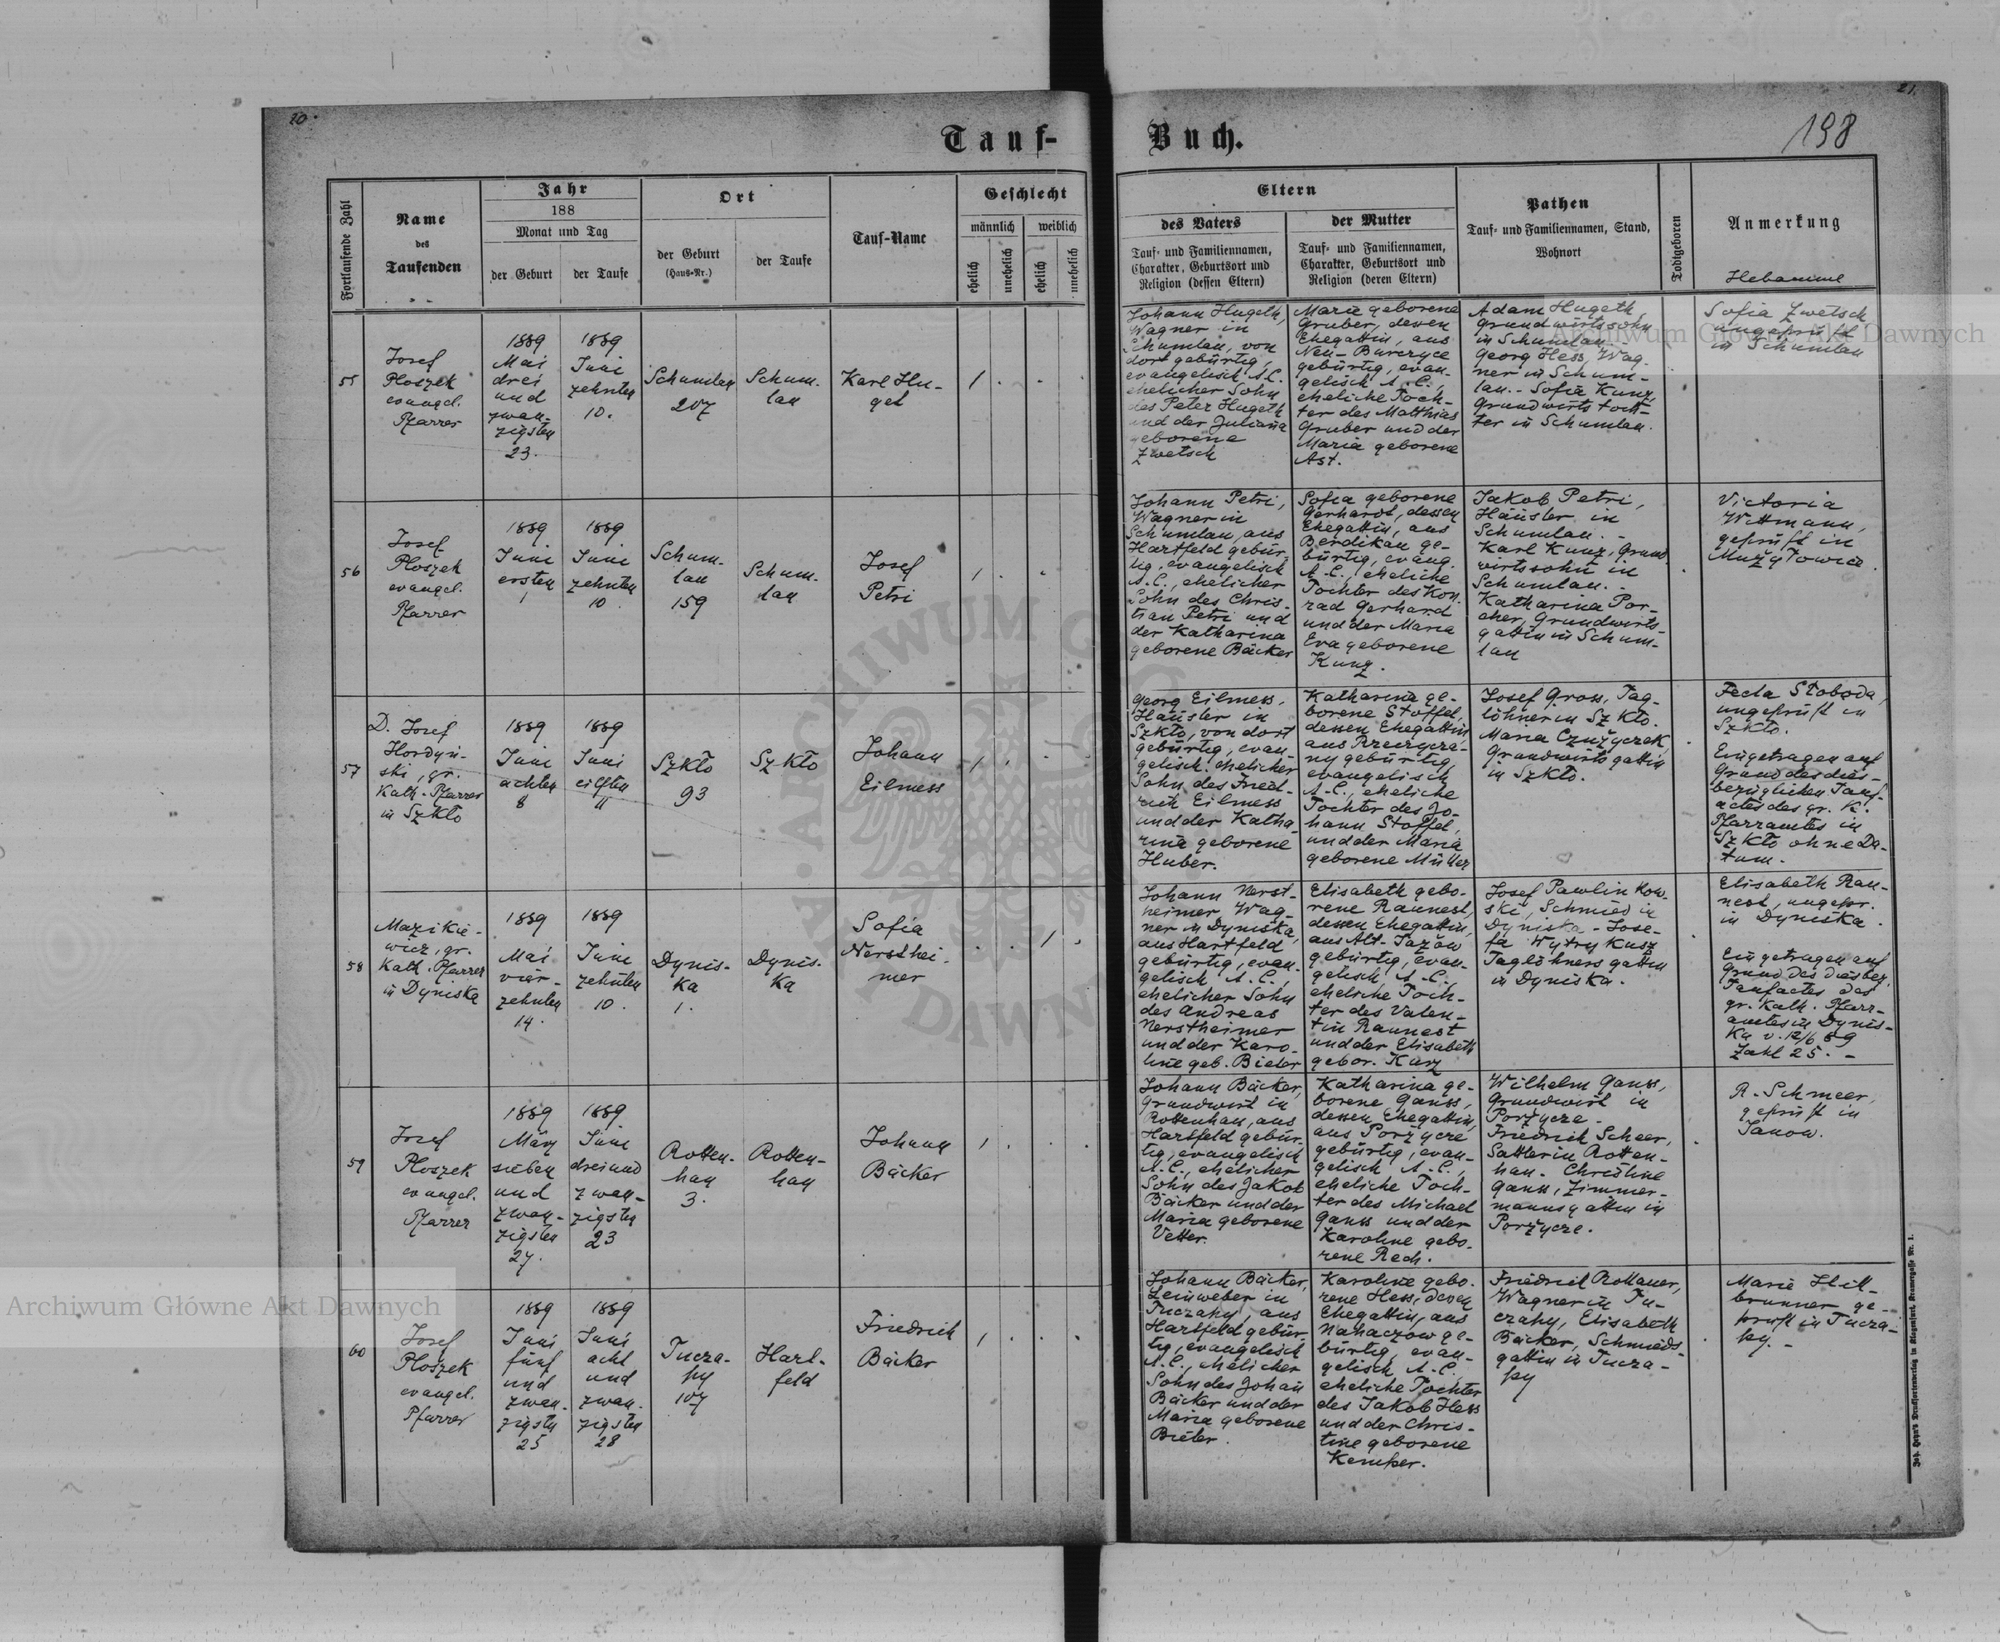 20.
21.
Tauf-Buch.
198
Fortlaufende Zahl
Name
des
Taufenden
Jahr
188
Monat und Tag
der Geburt
der Taufe
Ort
der Geburt
(Haus-Nr.)
der Taufe
Tauf-Name
Geschlecht
männlich
weiblich
ehelich
unehelich
ehelich
unehelich
Eltern
des Vaters
Tauf- und Familiennamen,
Charakter, Geburtsort und
Religion (dessen Eltern)
der Mutter
Tauf- und Familiennamen,
Charakter, Geburtsort und
Religion (deren Eltern)
Pathen
Tauf- und Familiennamen, Stand,
Wohnort
Todtgeboren
Anmerkung
Hebamme
55
Josef
Ploszek
evangel.
Pfarrer
1889
Mai
drei
und
zwan-
zigsten
23.
1889
Juni
zehnten
10.
Schumlau
207
Schum-
lau
Karl Hu-
get
1
Johann Hugeth,
Wagner in
Schumlau, von
dort gebürtig,
evangelisch A.C.
ehelicher Sohn
des Peter Hugeth
und der Juliana
geborene
Zwetsch
Marie geborene
Gruber, dessen
Ehegattin, aus
Neu-Burczyce
gebürtig, evan-
gelisch A.C.,
eheliche Toch-
ter des Matthias
Gruber und der
Maria geborene
Ast.
Adam Hugeth,
Grundwirtssohn
in Schumlau
Georg Hess, Wag-
ner in Schum-
lau.- Sofia Kunz,
Grundwirts toch-
ter in Schumlau.
Sofia Zwetsch
ungeprüft
in Schumlau
56
Josef
Ploszek
evangel.
Pfarrer
1889
Juni
ersten
1
1889
Juni
zehnten
10.
Schum-
lau
159
Schum-
lau
Josef
Petri
1
Johann Petri,
Wagner in
Schumlau, aus
Hartfeld gebür-
tig, evangelisch
A.C., ehelicher
Sohn des Chris-
tian Petri und
der Katharina
geborene Bäcker
Sofia geborene
Gerhardt, dessen
Ehegattin, aus
Berdikau ge-
bürtig, evang.
A.C., eheliche
Tochter des Kon-
rad Gerhard
und der Maria
Eva geborene
Kunz.
Jakob Petri,
Häusler in
Schumlau. -
Karl Kunz, Grund-
wirtssohn in
Schumlau. -
Katharina Por-
cher, Grundwirts-
gattin in Schum-
lau
Victoria
Wittmann,
geprüft in
Mużyłowice.
57
D. Josef
Hordyń-
ski, gr.
Kath. Pfarrer
in Szkło
1889
Juni
achten
8
1889
Juni
eilften
11
Szkło
93
Szkło
Johann
Eilmess
1
Georg Eilmess,
Häusler in
Szkło, von dort
gebürtig, evan-
gelisch ehelicher
Sohn des Fried-
rich Eilmess
und der Katha-
rina geborene
Huber.
Katharina ge-
borene Stoffel,
dessen Ehegattin
aus Rzeczyca-
ny gebürtig,
evangelisch
A.C., eheliche
Tochter des Jo-
hann Stoffel,
und der Maria
geborene Müller
Josef Gross, Tag-
löhner in Szkło.
Maria Czużyczek,
Grundwirts gattin
in Szkło.
Fecla Słoboda,
ungeprüft in
Szkło.
Eingetragen auf
Grund des dies-
bezüglichen Tauf-
actes des gr. K.
Pfarramtes in
Szkło ohne Da-
tum.
58
Mazikie-
wicz, gr.
Kath. Pfarrer
in Dyniska
1889
Mai
vier-
zehnten
14.
1889
Juni
zehnten
10.
Dynis-
ka
1.
Dynis-
ka
Sofia
Nersthei-
mer
1
Johann Nerst-
heimer Wag-
ner in Dyniska,
aus Hartfeld
gebürtig, evan-
gelisch A.C.,
ehelicher Sohn
des Andreas
Nerstheimer
und der Karo-
line geb. Bieler
Elisabeth gebo-
rene Raunest,
dessen Ehegattin,
aus Alt-Jażów
gebürtig, evan-
gelisch, A.C.,
eheliche Toch-
ter des Valen-
tin Raunest
und der Elisabeth
gebor. Karz
Josef Pawlinkow-
ski, Schmied in
Dyniska. Jose-
fa Wytrykusz
Taglöhners gattin
in Dyniska.
Elisabeth Rau-
nest, ungepr.
in Dyniska.
Eingetragen auf
Grund des diesbez.
Taufactes des
gr. Kath. Pfarr-
amtes in Dynis-
ka v. 12/6 89
Zahl 25. -
59
Josef
Ploszek
evangel.
Pfarrer
1889
März
sieben
und
zwan-
zigsten
27.
1889
Juni
drei und
zwan-
zigsten
23
Rotten-
han
3.
Rotten-
han
Johann
Bäcker
1
Johann Bäcker,
Grundwirt in
Rottenhan, aus
Hartfeld gebür-
tig, evangelisch
A.C., ehelicher
Sohn des Jakob
Bäcker und der
Maria geborene
Vetter.
Katharina ge-
borene Ganss,
dessen Ehegattin,
aus Porzycze
gebürtig, evan-
gelisch A.C.,
eheliche Toch-
ter des Michael
Ganss und der
Karoline gebo-
rene Rech.
Wilhelm Ganss,
Grundwirt in
Porżycze.
Friedrich Scheer,
Sattler in Rotten-
han. Christine
Ganss, Zimmer-
manns gattin in
Porżycze.
R. Schmeer,
geprüft in
Janow.
60
Josef
Ploszek
evangel.
Pfarrer
1889
Juni
fünf
und
zwan-
zigsten
25
1889
Juni
acht
und
zwan-
zigsten
28
Tucza-
py
107
Hart-
feld
Friedrich
Bäcker
1
Johann Bäcker,
Leinweber in
Tuczapy, aus
Hartfeld gebür-
tig, evangelisch
A.C., ehelicher
Sohn des Johan
Bäcker und der
Maria geborene
Bieler.
Karoline gebo-
rene Hess, dessen
Ehegattin, aus
Nahaczow ge-
bürtig, evan-
gelisch A.C.
eheliche Tochter
des Jakob Hess
und der Chris-
tine geborene
Kemper.
Friedrich Rottauer,
Wagner in Tu-
czapy, Elisabeth
Bäcker, Schmieds-
gattin in Tucza-
py
Marie Hill-
brunner ge-
prüft in Tucza-
py. -
Archiwum Główne Akt Dawnych
Archiwum Główne Akt Dawnych